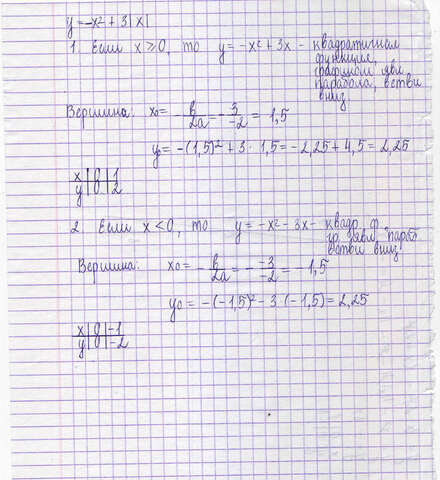 y=-x²+3|x|
1. Если x≥0, то y=-x²+3x - квадратичная
функция,
графиком явл
парабола, ветви
вниз
Вершина: x₀=-b/2a=-3/-2=1,5
y₀=-(1,5)²+3·1,5=-2,25+4,5=2,25
x|0|1
y|0|2
2. Если x<0, то y=-x²-3x - квадр. ф
гр. явл. параб
ветви вниз
Вершина: x₀=-b/2a=--3/-2=-1,5
y₀=-(-1,5)²-3·(-1,5)=2,25
x|0|-1
y|0|-2